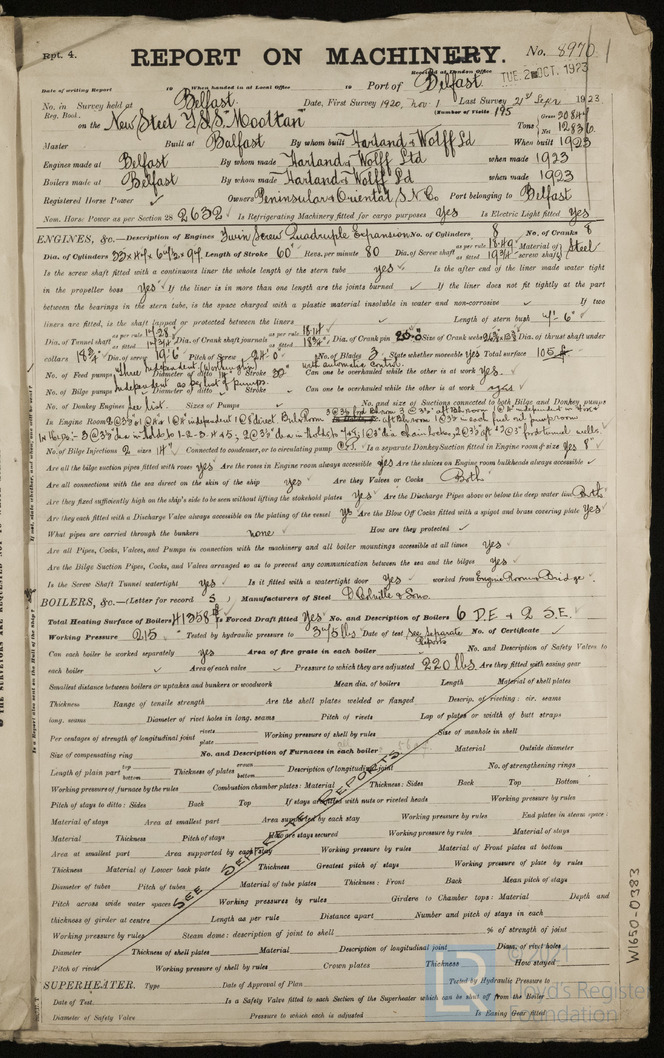 Rpt. 4.
REPORT ON MACHINERY.
No. 8976
Received at London Office
TUE. 2 OCT. 1923
Date of writing Report 19 When handed in at Local Office 19 Port of Belfast
No. in Survey held at Belfast Date, First Survey 1920, Nov 1 Last Survey 21st Sept 1923
Reg. Book. (Number of Visits 195
on the New Steel T.S.S. "Mooltan" Tons Gross 20847 Net 12836
Master Built at Belfast By whom built Harland & Wolff Ld When built 1923
Engines made at Belfast By whom made Harland & Wolff Ltd when made 1923
Boilers made at Belfast By whom made Harland & Wolff Ld when made 1923
Registered Horse Power Owners Peninsular & Oriental S.N. Co Port belonging to Belfast
Nom. Horse Power as per Section 28 2632 Is Refrigerating Machinery fitted for cargo purposes Yes Is Electric Light fitted Yes
ENGINES, &c.—Description of Engines Twin Screw Quadruple Expansion No. of Cylinders 8 No. of Cranks 8
Dia. of Cylinders Length of Stroke 60" Revs. per minute 80 Dia. of Screw shaft as per rule 18.49" as fitted 19 3/4" Material of screw shaft Steel
Is the screw shaft fitted with a continuous liner the whole length of the stern tube yes Is the after end of the liner made water tight
in the propeller boss yes If the liner is in more than one length are the joints burned If the liner does not fit tightly at the part
between the bearings in the stern tube, is the space charged with a plastic material insoluble in water and non-corrosive If two
liners are fitted, is the shaft lapped or protected between the liners Length of stern bush
Dia. of Tunnel shaft as per rule as fitted Dia. of Crank shaft journals as per rule as fitted Dia. of Crank pin Size of Crank webs Dia. of thrust shaft under
collars Dia. of screw 19'. 6" Pitch of Screw No. of Blades 3 State whether moveable yes Total surface 105
No. of Feed pumps Three Independent Diameter of ditto Stroke 30" with automatic control. Can one be overhauled while the other is at work yes.
No. of Bilge pumps Independent as per list of pumps. Diameter of ditto Stroke Can one be overhauled while the other is at work
No. of Donkey Engines See list. Sizes of Pumps No. and size of Suctions connected to both Bilge and Donkey pumps
In Engine Room
No. of Bilge Injections 2 sizes 14" Connected to condenser, or to circulating pump Is a separate Donkey Suction fitted in Engine room & size Yes 8"
Are all the bilge suction pipes fitted with roses yes Are the roses in Engine room always accessible yes Are the sluices on Engine room bulkheads always accessible
Are all connections with the sea direct on the skin of the ship yes Are they Valves or Cocks Both
Are they fixed sufficiently high on the ship's side to be seen without lifting the stokehold plates Yes Are the Discharge Pipes above or below the deep water line Both
Are they each fitted with a Discharge Valve always accessible on the plating of the vessel yes Are the Blow Off Cocks fitted with a spigot and brass covering plate Yes
What pipes are carried through the bunkers none How are they protected
Are all Pipes, Cocks, Valves, and Pumps in connection with the machinery and all boiler mountings accessible at all times yes
Are the Bilge Suction Pipes, Cocks, and Valves arranged so as to prevent any communication between the sea and the bilges yes
Is the Screw Shaft Tunnel watertight Yes Is it fitted with a watertight door Yes worked from Engine Room & Bridge.
BOILERS, &c.—(Letter for record S) Manufacturers of Steel D. Colville & Sons.
Total Heating Surface of Boilers 41358 Is Forced Draft fitted Yes No. and Description of Boilers 6 D.E. & 2 S.E.
Working Pressure 215 Tested by hydraulic pressure to 375 lbs Date of test See Separate Reports No. of Certificate
Can each boiler be worked separately yes Area of fire grate in each boiler No. and Description of Safety Valves to
each boiler Area of each valve Pressure to which they are adjusted 220 lbs. Are they fitted with easing gear
Smallest distance between boilers or uptakes and bunkers or woodwork Mean dia. of boilers Length Material of shell plates
Thickness Range of tensile strength Are the shell plates welded or flanged Descrip. of riveting: cir. seams
long. seams Diameter of rivet holes in long. seams Pitch of rivets Lap of plates or width of butt straps
Per centages of strength of longitudinal joint rivets plate Working pressure of shell by rules Size of manhole in shell
Size of compensating ring No. and Description of Furnaces in each boiler Material Outside diameter
Length of plain part top bottom Thickness of plates crown bottom Description of longitudinal joint No. of strengthening rings
Working pressure of furnace by the rules Combustion chamber plates: Material Thickness: Sides Back Top Bottom
Pitch of stays to ditto: Sides Back Top If stays are fitted with nuts or riveted heads Working pressure by rules
Material of stays Area at smallest part Area supported by each stay Working pressure by rules End plates in steam space:
Material Thickness Pitch of stays How are stays secured Working pressure by rules Material of stays
Area at smallest part Area supported by each stay Working pressure by rules Material of Front plates at bottom
Thickness Material of Lower back plate Thickness Greatest pitch of stays Working pressure of plate by rules
Diameter of tubes Pitch of tubes Material of tube plates Thickness: Front Back Mean pitch of stays
Pitch across wide water spaces Working pressures by rules Girders to Chamber tops: Material Depth and
thickness of girder at centre Length as per rule Distance apart Number and pitch of stays in each
Working pressure by rules Steam dome: description of joint to shell % of strength of joint
Diameter Thickness of shell plates Material Description of longitudinal joint Diam. of rivet holes
Pitch of rivets Working pressure of shell by rules Crown plates Thickness How stayed
SEE SEPARATE REPORTS
SUPERHEATER. Type Date of Approval of Plan Tested by Hydraulic Pressure to
Date of Test Is a Safety Valve fitted to each Section of the Superheater which can be shut off from the Boiler
Diameter of Safety Valve Pressure to which each is adjusted Is Easing Gear fitted
W1650-0383
© 2021
Lloyd's Register
Foundation